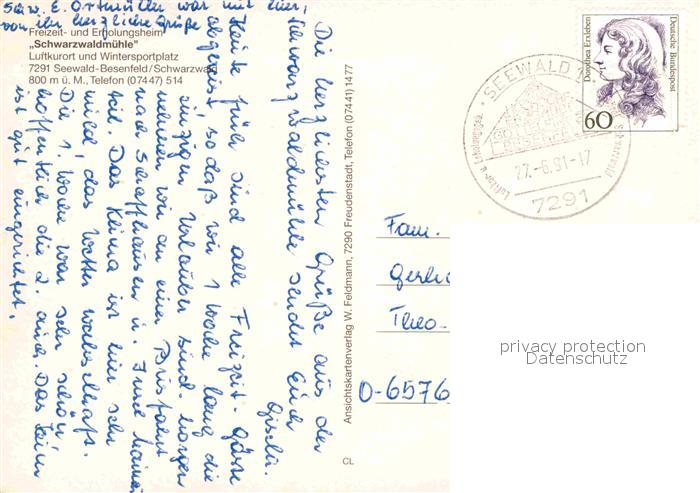 Schw. E. Ortmüller war mit hier,
von ihr herzliche Grüße
Freizeit- und Erholungsheim
„Schwarzwaldmühle"
Luftkurort und Wintersportplatz
7291 Seewald-Besenfeld/Schwarzwald
800 m ü. M., Telefon (07447) 514
Die herzlichsten Grüße aus der
Schwarzwaldmühle sendet Euch
Gisela
Heute früh sind alle Freizeit-Gäste
abgereist, sodaß wir 1 Woche lang die
einzigen Urlauber sind. Morgen
nehmen wir an einer Busfahrt
nach Schaffhausen u. Insel Mainau
teil. Das Klima ist hier sehr
mild, das Wetter wechselhaft.
Die 1. Woche war sehr schön,
hoffentlich die 2. auch. Das Heim
ist gut eingerichtet.
Ansichtskartenverlag W. Feldmann, 7290 Freudenstadt, Telefon (07441) 1477
CL
Dorothea Erxleben
Deutsche Bundespost
60
SEEWALD 1
Luftkur- u. Erholungsgeb.
Schwarzwald
27.-6.91-17
7291
Fam.
Gerh
Theo
O-6576
privacy protection
Datenschutz